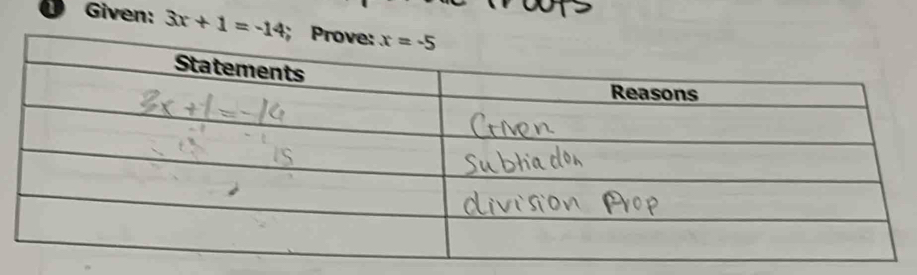 1 Given: 3x + 1 = -14; Prove: x = -5
Statements Reasons
3x+1=-14 Given
-1 -1
15 Subtraction
division Prop